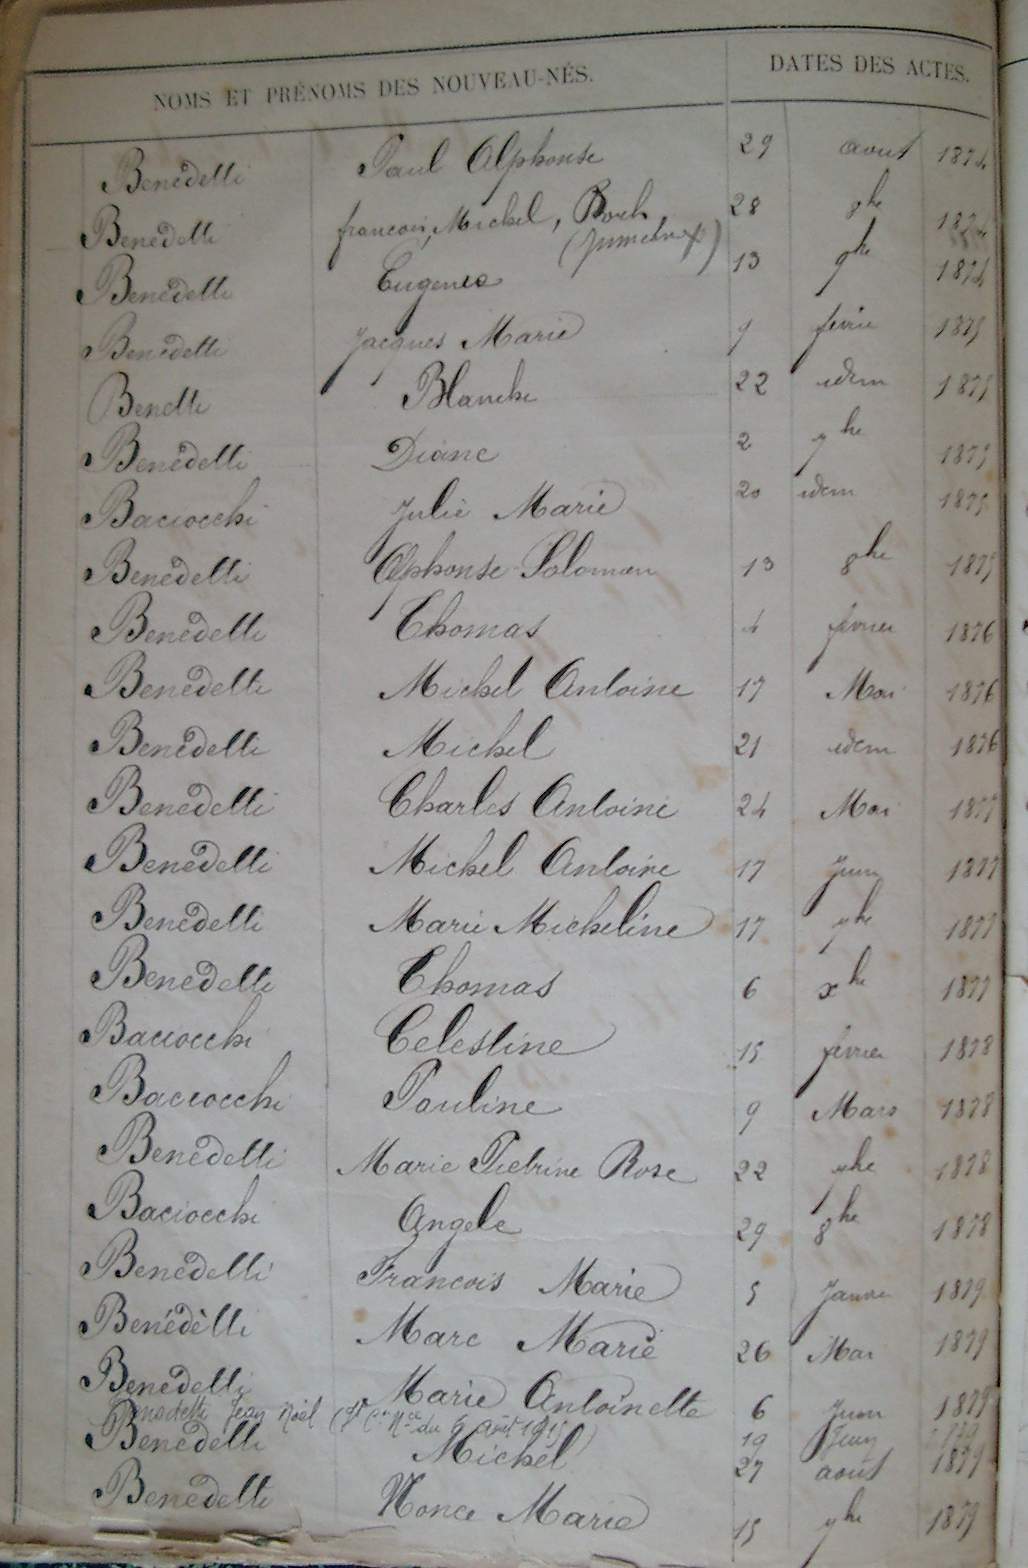 NOMS ET PRÉNOMS DES NOUVEAU-NÉS. DATES DES ACTES.
Benedetti Paul Alphonse 29 aout 1874
Benedetti francois, Michel, Roch 28 1874
Benedetti Eugenie 13 9bre 1874
Benedetti Jacques Marie 9 février 1875
Benetti Blanche 22 idem 1875
Benedetti Diane 2 9bre 1875
Baciocchi Julie Marie 20 idem 1875
Benedetti Alphonse Salomon 13 8bre 1875
Benedetti Thomas 4 février 1876
Benedetti Michel Antoine 17 Mai 1876
Benedetti Michel 21 idem 1876
Benedetti Charles Antoine 24 Mai 1877
Benedetti Michel Antoine 17 Juin 1877
Benedetti Marie Micheline 17 9bre 1877
Benedetti Thomas 6 xbre 1877
Baciocchi Celestine 15 février 1878
Baciocchi Pauline 9 Mars 1878
Benedetti Marie Pietrine Rose 22 1878
Baciocchi Angele 29 8bre 1878
Benedetti Francois Marie 5 Janvier 1879
Benédètti Marc Marie 26 Mai 1879
Benedetti Marie Antoinette 6 Juin 1879
Benedetti Jean Noël 19 Juin
Benedetti Michel 27 août 1879
Benedetti Nonce Marie 15 9bre 1879